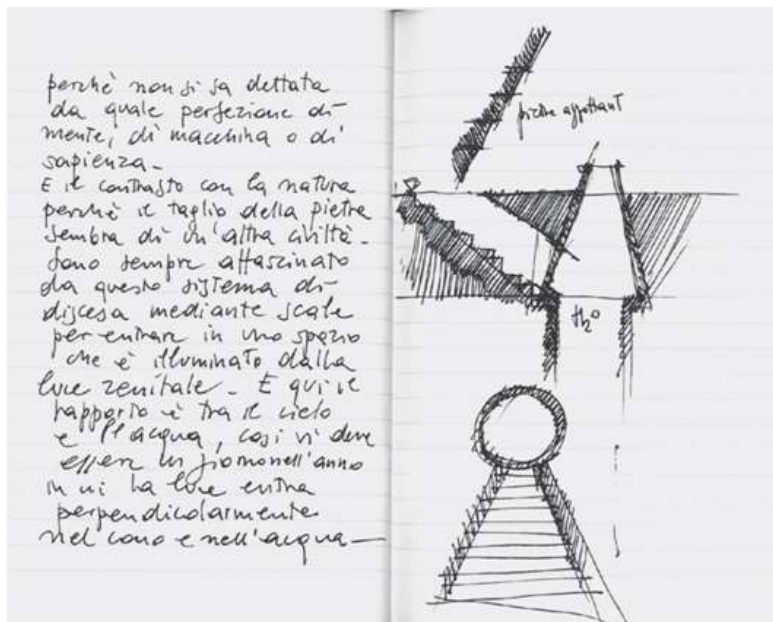 perchè non si sa dettata
da quale perfezione di
mente, di macchina o di
sapienza.
E il contrasto con la natura
perchè il taglio della pietra
sembra di un'altra civiltà.
Sono sempre affascinato
da questo sistema di
discesa mediante scale
per entrare in uno spazio
che è illuminato dalla
luce zenitale. E qui il
rapporto è tra il cielo
e l'acqua, così vi deve
essere un giorno nell'anno
in cui la luce entra
perpendicolarmente
nel cono e nell'acqua
pietre
H2O